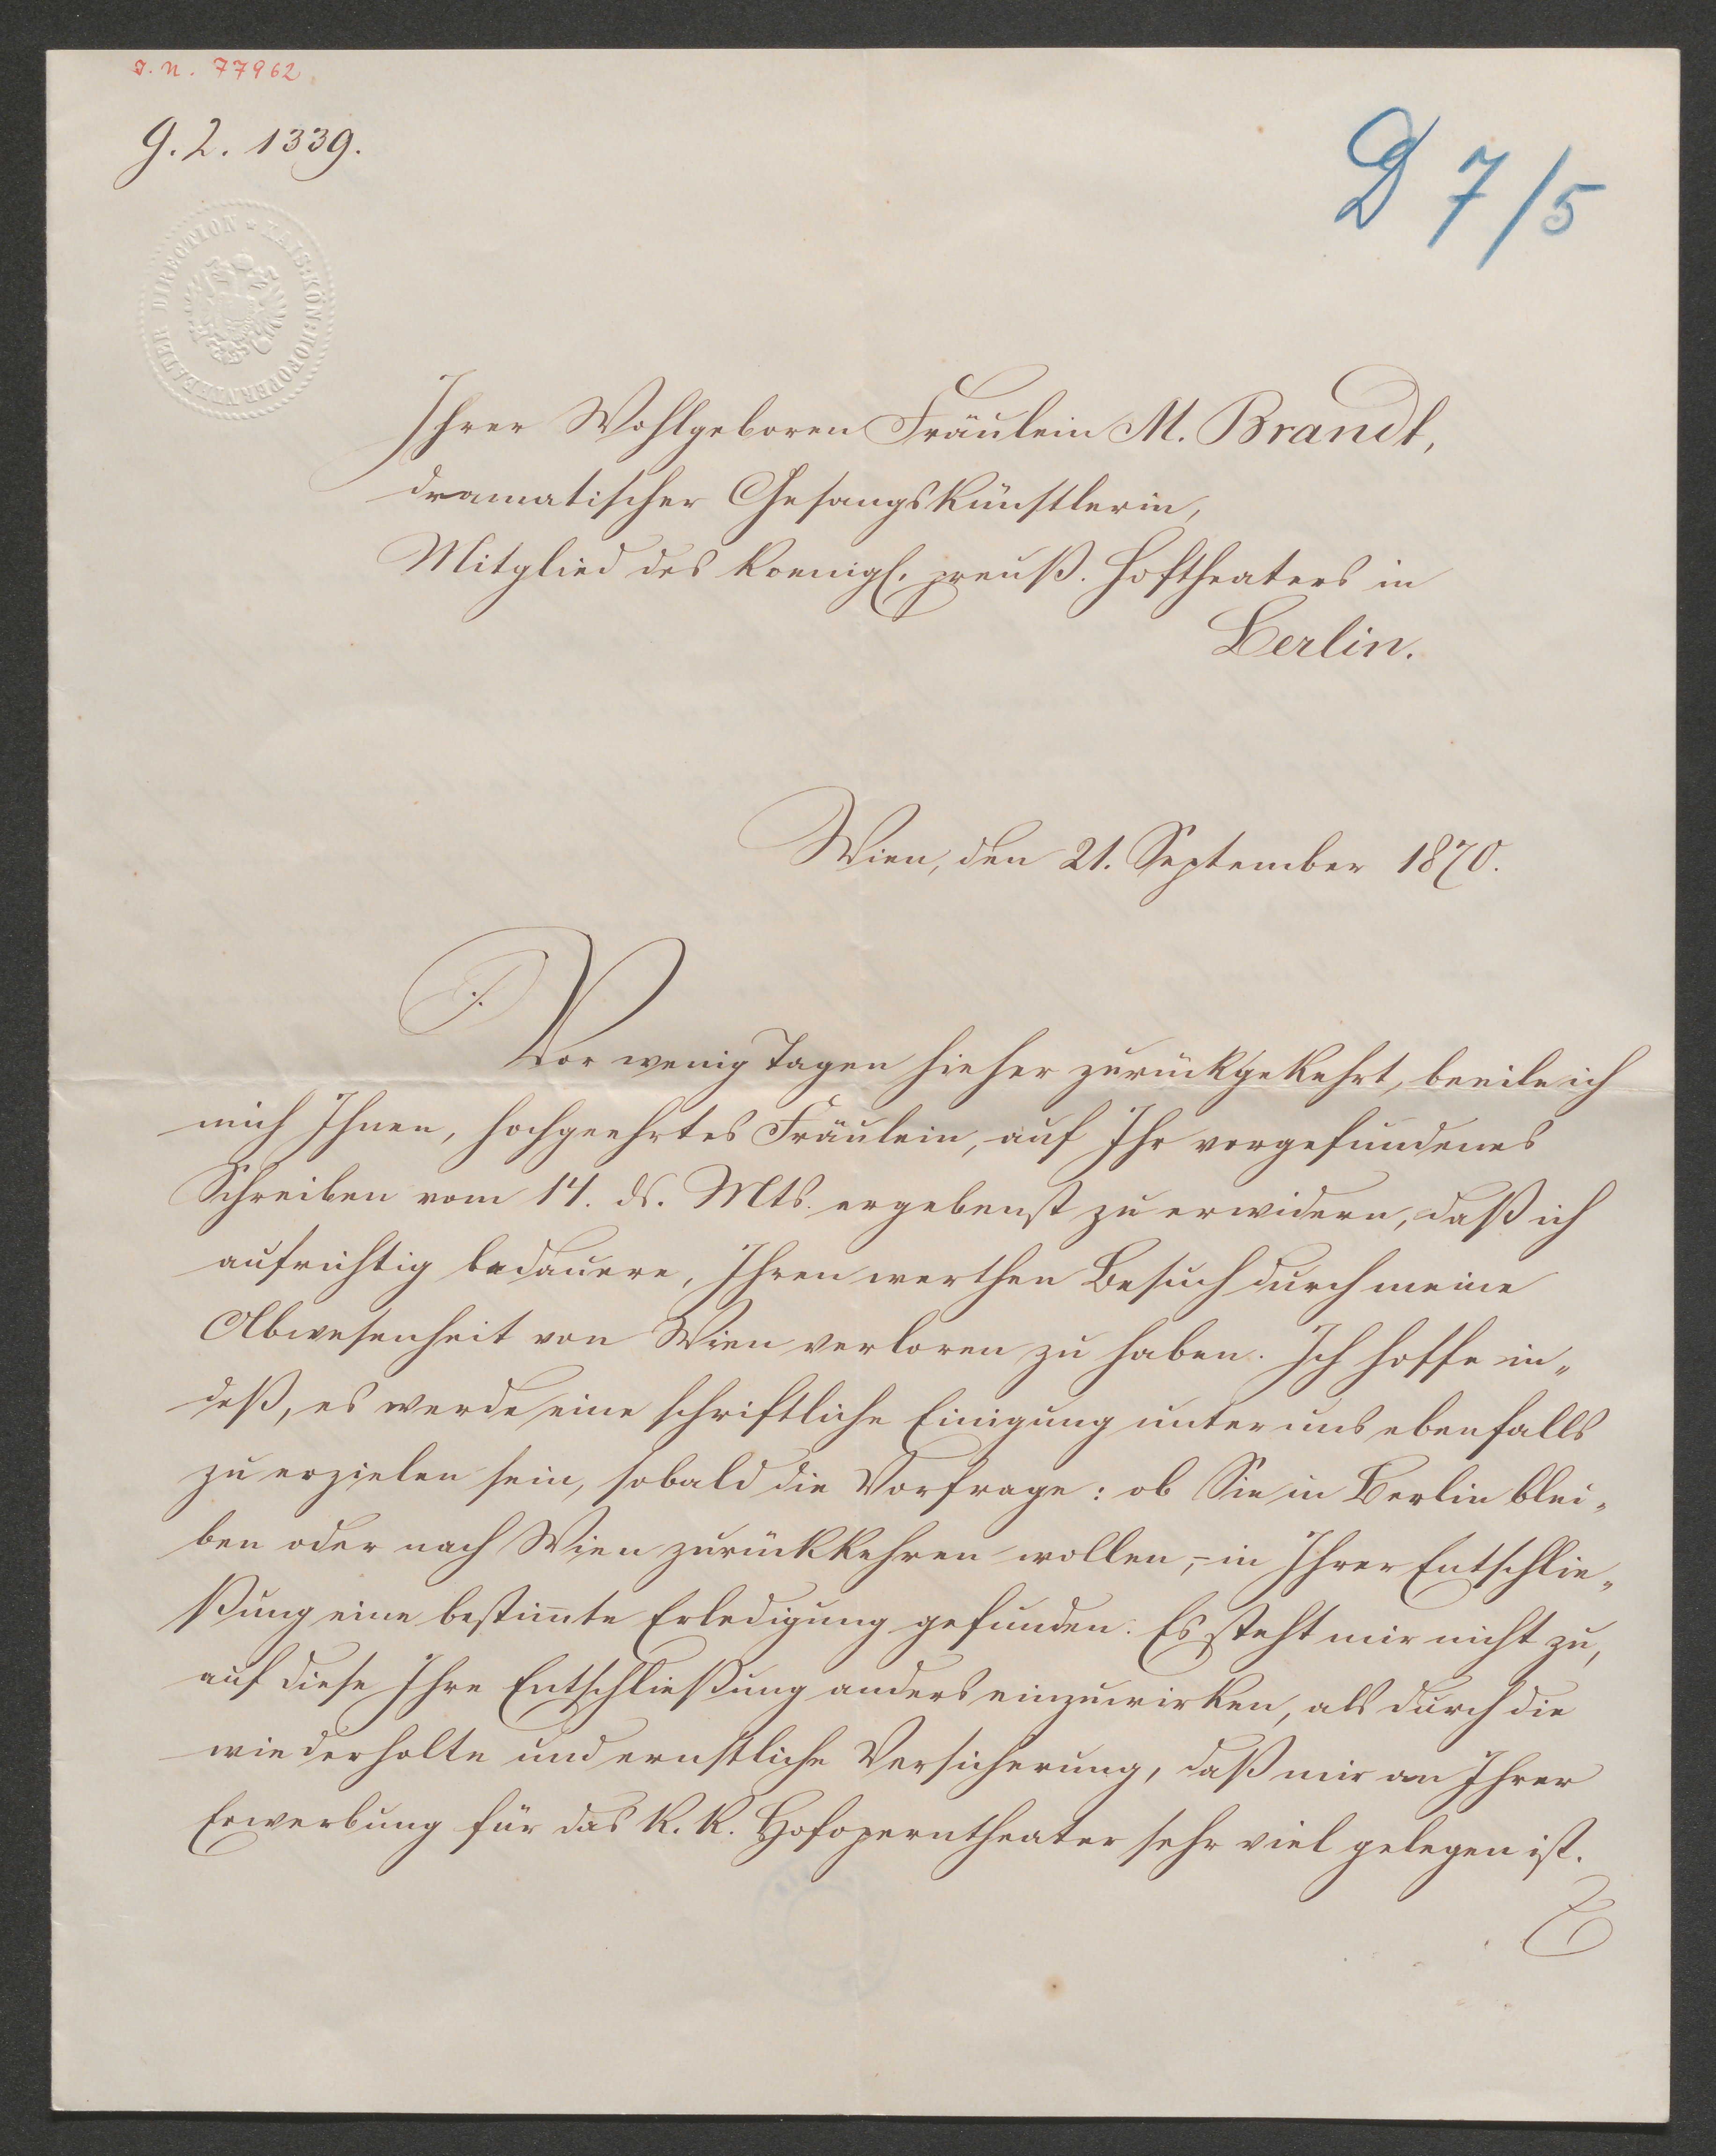 J. N. 77962
G. Z. 1339.
D 7/5
KAIS. KÖN. HOFOPERNTHEATER DIRECTION
Ihrer Wohlgeboren Fräulein M. Brandt,
dramatischer Gesangskünstlerin,
Mitglied des koenigl. preuß. Hoftheaters in
Berlin.
Wien, den 21. September 1870.
Vor wenig Tagen hieher zurückgekehrt, beeile ich
mich Ihnen, hochgeehrtes Fräulein, auf Ihr vorgefundenes
Schreiben vom 14. ds. Mts. ergebenst zu erwidern, daß ich
aufrichtig bedauere, Ihren werthen Besuch durch meine
Abwesenheit von Wien verloren zu haben. Ich hoffe in„
deß, es werde eine schriftliche Einigung unter uns ebenfalls
zu erzielen sein, sobald die Vorfrage: ob Sie in Berlin blei„
ben oder nach Wien zurückkehren wollen, – in Ihrer Entschlie„
ßung eine bestim̄te Erledigung gefunden. Es steht mir nicht zu,
auf diese Ihre Entschließung anders einzuwirken, als durch die
wiederholte und ernstliche Versicherung, daß mir an Ihrer
Erwerbung für das K. K. Hofoperntheater sehr viel gelegen ist.